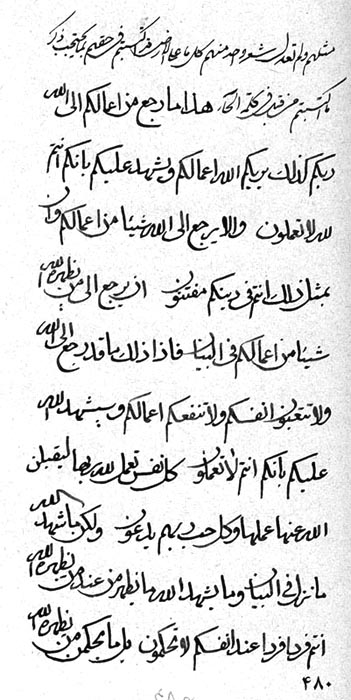 مثلهم ولم تعدل شعر واحد منهم كل ما على الارض
ما اكتسبتم من قبل في هذا ما رجع من اعمالكم الى الله
ربكم كذلك يريكم الله اعمالكم ويشهد عليكم بانكم انتم
لله لا تعملون والا يرجع الى الله شيئا من اعمالكم وان
بمثل ذلك انتم في دينكم مفتنون ان يرجع الى من يظهره الله
شيئا من اعمالكم في البيان فاذا ذلك ما قد رجع الى الله
ولا تتعبون انفسكم ولا تنفعكم اعمالكم وسيشهد الله
عليكم بانكم انتم لا تعملون كل نفس تعمل لله ربها ليقبلن
الله عنها عملها وكل حب ربهم يدعون ولكن ما شهد الله
ما نزل في البيان وما يشهد الله ما يظهر من عند من يظهره الله
انتم فردا فردا عند انفسكم لا تحكمون بل ما يحكمن من يظهره الله
۴۸۰